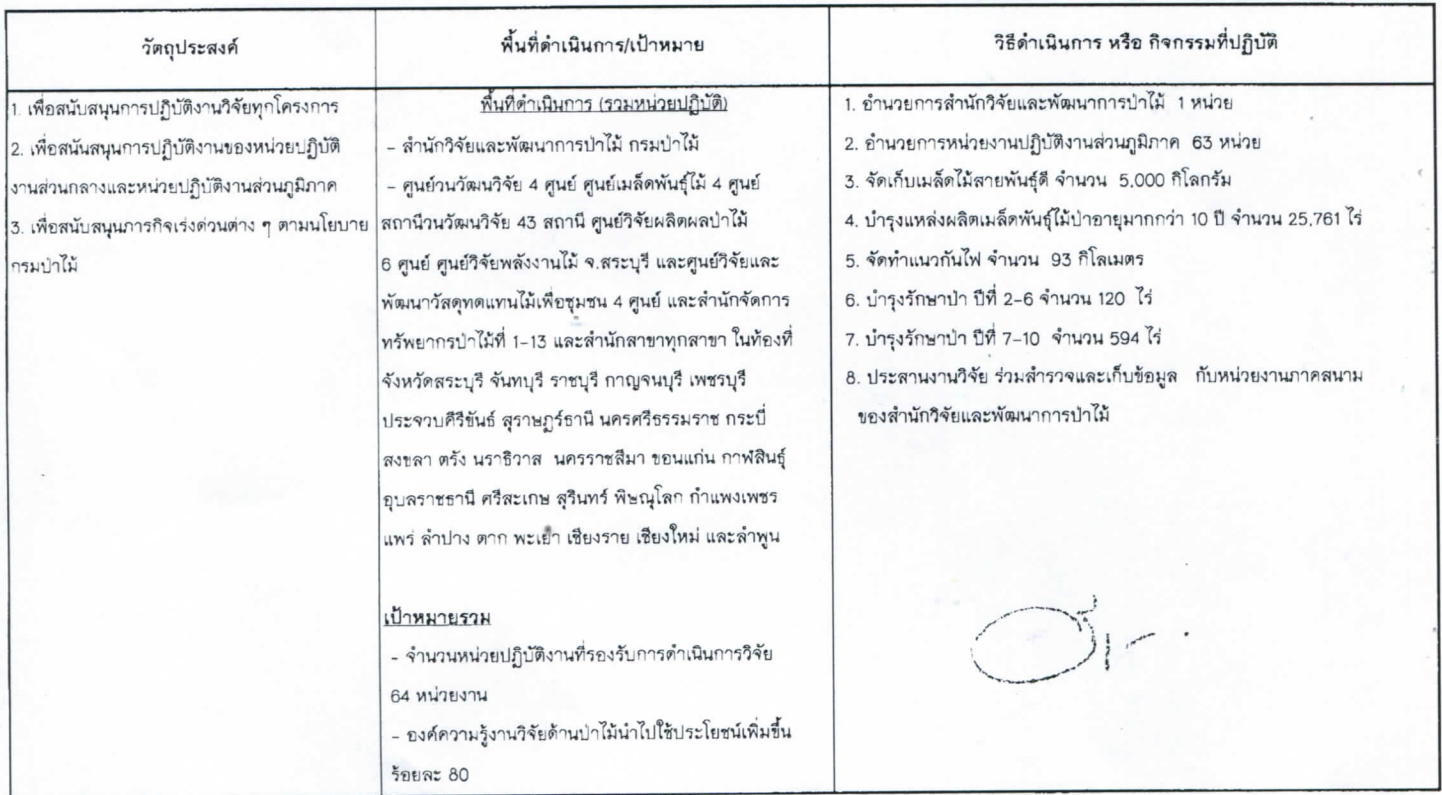 วัตถุประสงค์
พื้นที่ดำเนินการ/เป้าหมาย
วิธีดำเนินการ หรือ กิจกรรมที่ปฏิบัติ
1. เพื่อสนับสนุนการปฏิบัติงานวิจัยทุกโครงการ
2. เพื่อสนันสนุนการปฏิบัติงานของหน่วยปฏิบัติ
งานส่วนกลางและหน่วยปฏิบัติงานส่วนภูมิภาค
3. เพื่อสนับสนุนภารกิจเร่งด่วนต่าง ๆ ตามนโยบาย
กรมป่าไม้
พื้นที่ดำเนินการ (รวมหน่วยปฏิบัติ)
- สำนักวิจัยและพัฒนาการป่าไม้ กรมป่าไม้
- ศูนย์วนวัฒนวิจัย 4 ศูนย์ ศูนย์เมล็ดพันธุ์ไม้ 4 ศูนย์
สถานีวนวัฒนวิจัย 43 สถานี ศูนย์วิจัยผลิตผลป่าไม้
6 ศูนย์ ศูนย์วิจัยพลังงานไม้ จ.สระบุรี และศูนย์วิจัยและ
พัฒนาวัสดุทดแทนไม้เพื่อชุมชน 4 ศูนย์ และสำนักจัดการ
ทรัพยากรป่าไม้ที่ 1-13 และสำนักสาขาทุกสาขา ในท้องที่
จังหวัดสระบุรี จันทบุรี ราชบุรี กาญจนบุรี เพชรบุรี
ประจวบคีรีขันธ์ สุราษฎร์ธานี นครศรีธรรมราช กระบี่
สงขลา ตรัง นราธิวาส นครราชสีมา ขอนแก่น กาฬสินธุ์
อุบลราชธานี ศรีสะเกษ สุรินทร์ พิษณุโลก กำแพงเพชร
แพร่ ลำปาง ตาก พะเยา เชียงราย เชียงใหม่ และลำพูน
เป้าหมายรวม
- จำนวนหน่วยปฏิบัติงานที่รองรับการดำเนินการวิจัย
64 หน่วยงาน
- องค์ความรู้งานวิจัยด้านป่าไม้นำไปใช้ประโยชน์เพิ่มขึ้น
ร้อยละ 80
1. อำนวยการสำนักวิจัยและพัฒนาการป่าไม้ 1 หน่วย
2. อำนวยการหน่วยงานปฏิบัติงานส่วนภูมิภาค 63 หน่วย
3. จัดเก็บเมล็ดไม้สายพันธุ์ดี จำนวน 5,000 กิโลกรัม
4. บำรุงแหล่งผลิตเมล็ดพันธุ์ไม้ป่าอายุมากกว่า 10 ปี จำนวน 25,761 ไร่
5. จัดทำแนวกันไฟ จำนวน 93 กิโลเมตร
6. บำรุงรักษาป่า ปีที่ 2-6 จำนวน 120 ไร่
7. บำรุงรักษาป่า ปีที่ 7-10 จำนวน 594 ไร่
8. ประสานงานวิจัย ร่วมสำรวจและเก็บข้อมูล กับหน่วยงานภาคสนาม
ของสำนักวิจัยและพัฒนาการป่าไม้